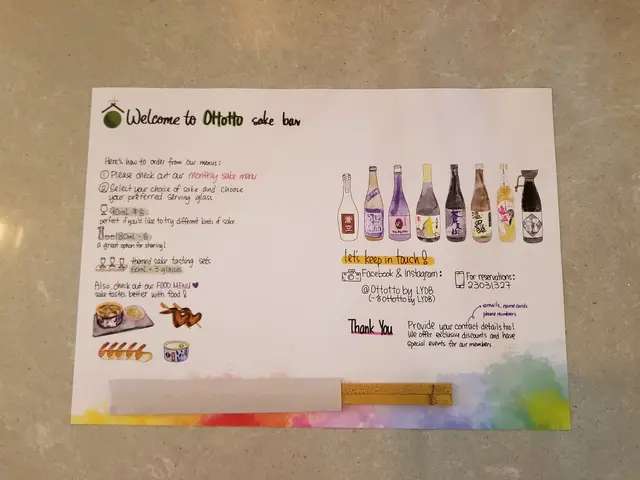 Welcome to Ottotto sake bar
Here's how to order from our menus:
① Please check out our monthly sake menu
② Select your choice of sake and choose
your preferred serving glass
90mL
perfect if you'd like to try different kinds of sake
180mL
a great option for sharing!
themed sake tasting sets
60mL × 3 glasses
Also, check out our FOOD MENU
sake tastes better with food!
蒼空
let's keep in touch!
Facebook & Instagram:
@Ottotto by LYDB
For reservations:
23031327
emails, name cards
phone numbers
Thank You
Provide your contact details too!
We offer exclusive discounts and have
special events for our members